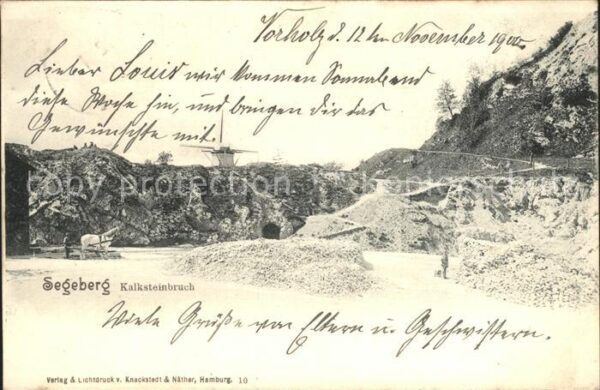 Vorholz d. 12ten November 1900
Lieber Louis wir kommen Sonnabend
diese Woche hin, und bringen dir das
Gewünschte mit
Segeberg Kalksteinbruch
Viele Grüße von Eltern u. Geschwistern.
Verlag & Lichtdruck v. Knackstedt & Näther, Hamburg. 10